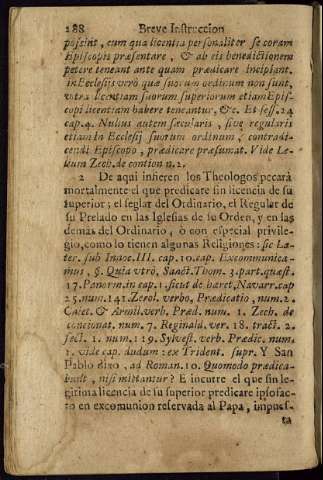 188 Breve Instruccion
possint, cum qua licentia personaliter se coram
Episcopis præsentare, & ab eis benedictionem
petere teneant ante quam prædicare incipiant.
in Ecclesijs verò quæ suorum ordinum non sunt,
vltra licentiam suorum superiorum etiam Epis-
copi licentiam habere teneantur, &c. Et sess. 24
cap. 4. Nullus autem sæcularis, sive regularis
etiam in Ecclesijs suorum ordinum, contradi-
cendi Episcopo, prædicare præsumat. Vide Le-
Zech. de contion n. 2.
2 De aqui infieren los Theologos pecarà
mortalmente el que predicare sin licencia de su
superior; el seglar del Ordinario, el Regular de
su Prelado en las Iglesias de su Orden, y en las
demàs del Ordinario, ò con especial privile-
gio, como lo tienen algunas Religiones: sic La-
ter. sub Inaoc. III. cap. 10. cap. Excommunica-
mus, §. Quia vtrò, Sanct. Thom. 3. part. quæst.
17. Panorm. in cap. 1. sicut de hæret, Navarr. cap
25. num. 141. Zerol. verbo, Prædicatio, num. 2.
Caiet. & Armil. verb, Præd. num. 1. Zech. de
concionat. num. 7. Reginald. ver. 18. tract. 2.
sect. 1. num. 119. Sylvest. verb. Prædic. num.
1. vide cap. dudum: ex Trident. supr. Y San
Pablo dixo, ad Roman. 10. Quomodo prædica-
bunt, nisi mittantur? E incurre el que sin le-
gitima licencia de su superior predicare ipsofac-
to en excomunion reservada al Papa, impues-
ta